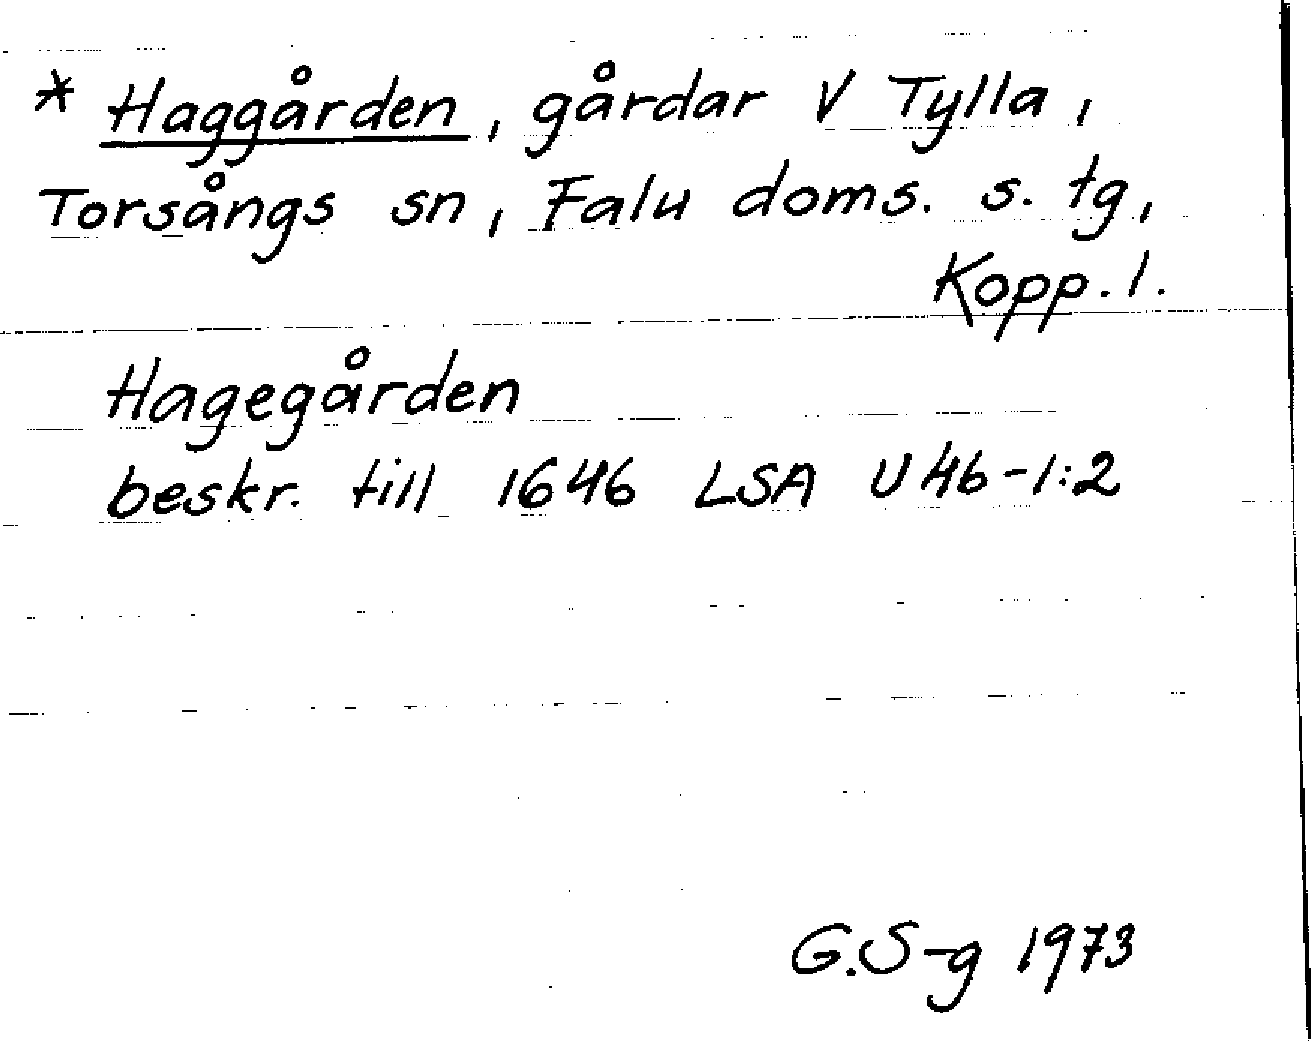 * Haggården, gårdar V Tylla,
Torsångs sn, Falu doms. s. tg,
Kopp. l.
Hagegården
beskr. till 1646 LSA U46-1:2
G.S-g 1973